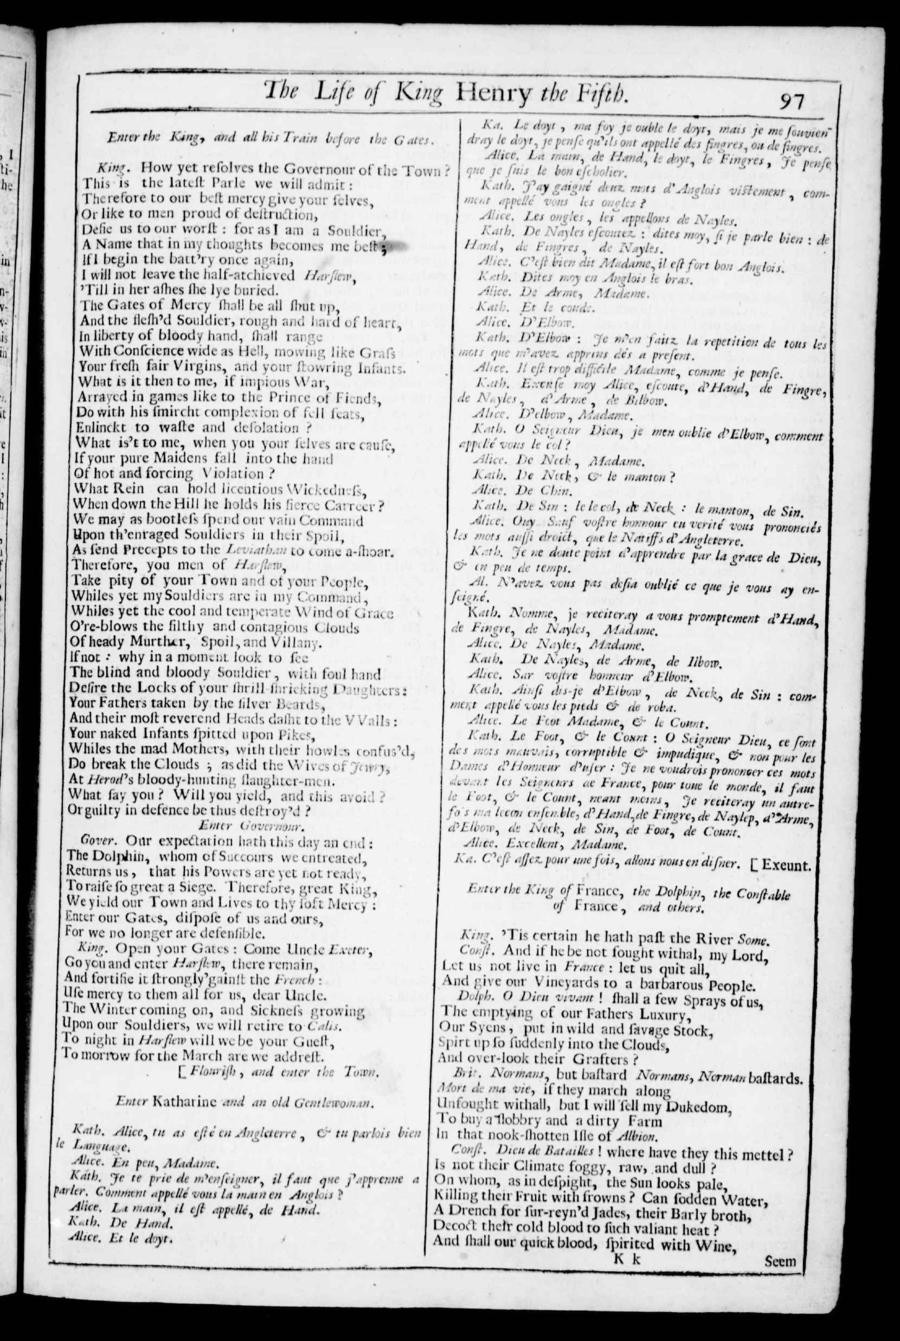 The Life of King Henry the Fifth.
97
Enter the King, and all his Train before the Gates.
King. How yet resolves the Governour of the Town?
This is the latest Parle we will admit:
Therefore to our best mercy give your selves,
Or like to men proud of destruction,
Defie us to our worst: for as I am a Souldier,
A Name that in my thoughts becomes me best;
If I begin the batt'ry once again,
I will not leave the half-atchieved Harflew,
'Till in her ashes she lye buried.
The Gates of Mercy shall be all shut up,
And the flesh'd Souldier, rough and hard of heart,
In liberty of bloody hand, shall range
With Conscience wide as Hell, mowing like Grass
Your fresh fair Virgins, and your flowring Infants.
What is it then to me, if impious War,
Arrayed in games like to the Prince of Fiends,
Do with his smircht complexion of fell feats,
Enlinckt to waste and desolation?
What is't to me, when you your selves are cause,
If your pure Maidens fall into the hand
Of hot and forcing Violation?
What Rein can hold licentious Wickedness,
When down the Hill he holds his fierce Carreer?
We may as bootless spend our vain Command
Upon th'enraged Souldiers in their Spoil,
As send Precepts to the Leviathan to come a-shoar.
Therefore, you men of Harflew,
Take pity of your Town and of your People,
Whiles yet my Souldiers are in my Command,
Whiles yet the cool and temperate Wind of Grace
O're-blows the filthy and contagious Clouds
Of heady Murther, Spoil, and Villany.
If not: why in a moment look to see
The blind and bloody Souldier, with foul hand
Desire the Locks of your shrill-shricking Daughters:
Your Fathers taken by the silver Beards,
And their most reverend Heads dasht to the VValls:
Your naked Infants spitted upon Pikes,
Whiles the mad Mothers, with their howles confus'd,
Do break the Clouds; as did the Wives of Jewry,
At Herod's bloody-hunting slaughter-men.
What say you? Will you yield, and this avoid?
Or guilty in defence be thus destroy'd?
Enter Governour.
Gover. Our expectation hath this day an end:
The Dolphin, whom of Succours we entreated,
Returns us, that his Powers are yet not ready,
To raise so great a Siege. Therefore, great King,
We yield our Town and Lives to thy soft Mercy:
Enter our Gates, dispose of us and ours,
For we no longer are defensible.
King. Open your Gates: Come Uncle Exeter,
Go you and enter Harflew, there remain,
And fortifie it strongly 'gainst the French:
Use mercy to them all for us, dear Uncle.
The Winter coming on, and Sickness growing
Upon our Souldiers, we will retire to Calis.
To night in Harflew will we be your Guest,
To morrow for the March are we addrest.
[Flourish, and enter the Town.
Enter Katharine and an old Gentlewoman.
Kath. Alice, tu as esté en Angleterre, & tu parlois bien
le Language.
Alice. En peu, Madame.
Kath. Je te prie de m'enseigner, il faut que j'apprenne a
parler. Comment appellé vous la main en Anglois?
Alice. La main, il est appellé, de Hand.
Kath. De Hand.
Alice. Et le doyt.
Ka. Le doyt, ma foy je ouble le doyt, mais je me souvien
dray le doyt, je pense qu'ils ont appellé des fingres, ou de fingres.
Alice. La main, de Hand, le doyt, le Fingres, Je pense
que je suis le bon escholier.
Kath. J'ay gaigné deux mots d'Anglois vistement, com-
ment appellé vous les ongles?
Alice. Les ongles, les appellons de Nayles.
Kath. De Nayles escoutez: dites moy, si je parle bien: de
Hand, de Fingres, de Nayles.
Alice. C'est bien dit Madame, il est fort bon Anglois.
Kath. Dites moy en Anglois le bras.
Alice. De Arme, Madame.
Kath. Et le coude.
Alice. D'Elbow.
Kath. D'Elbow: Je m'en faitz la repetition de tous les
mots que m'avez apprins dés a present.
Alice. Il est trop difficile Madame, comme je pense.
Kath. Excuse moy Alice, escoute, d'Hand, de Fingre,
de Nayles, d'Arme, de Bilbow.
Alice. D'elbow, Madame.
Kath. O Seigneur Dieu, je men oublie d'Elbow, comment
appellé vous le col?
Alice. De Neck, Madame.
Kath. De Neck, & le manton?
Alice. De Chin.
Kath. De Sin: le le col, de Neck: le manton, de Sin.
Alice. Ouy Sauf vostre honnour en verité vous prononciés
les mots aussi droict, que le Natiffs d'Angleterre.
Kath. Je ne doute point d'apprendre par la grace de Dieu,
& en peu de temps.
Al. N'avez vous pas desia oublié ce que je vous ay en-
seigné.
Kath. Nomme, je reciteray a vous promptement d'Hand,
de Fingre, de Nayles, Madame.
Alice. De Nayles, Madame.
Kath. De Nayles, de Arme, de Ilbow.
Alice. Sar vostre honneur d'Elbow.
Kath. Ainsi dis-je d'Elbow, de Neck, de Sin: com-
ment appellé vous les pieds & de roba.
Alice. Le Foot Madame, & le Count.
Kath. Le Foot, & le Count: O Seigneur Dieu, ce sont
des mots mauvais, corruptible & impudique, & non pour les
Dames d'Honneur d'user: Je ne voudrois prononcer ces mots
devant les Seigneurs de France, pour toue le monde, il faut
le Foot, & le Count, neant moins, Je reciteray un autre-
fo's ma lecon ensemble, d'Hand, de Fingre, de Naylep, d'Arme,
d'Elbow, de Neck, de Sin, de Foot, de Count.
Alice. Excellent, Madame.
Ka. C'est assez pour une fois, allons nous en disner. [Exeunt.
Enter the King of France, the Dolphin, the Constable
of France, and others.
King. 'Tis certain he hath past the River Some.
Const. And if he be not fought withal, my Lord,
Let us not live in France: let us quit all,
And give our Vineyards to a barbarous People.
Dolph. O Dieu vivant! shall a few Sprays of us,
The emptying of our Fathers Luxury,
Our Syens, put in wild and savage Stock,
Spirt up so suddenly into the Clouds,
And over-look their Grafters?
Brit. Normans, but bastard Normans, Norman bastards.
Mort de ma vie, if they march along
Unfought withall, but I will sell my Dukedom,
To buy a slobbry and a dirty Farm
In that nook-shotten Isle of Albion.
Const. Dieu de Batailles! where have they this mettel?
Is not their Climate foggy, raw, and dull?
On whom, as in despight, the Sun looks pale,
Killing their Fruit with frowns? Can sodden Water,
A Drench for sur-reyn'd Jades, their Barly broth,
Decoct their cold blood to such valiant heat?
And shall our quick blood, spirited with Wine,
K k
Seem